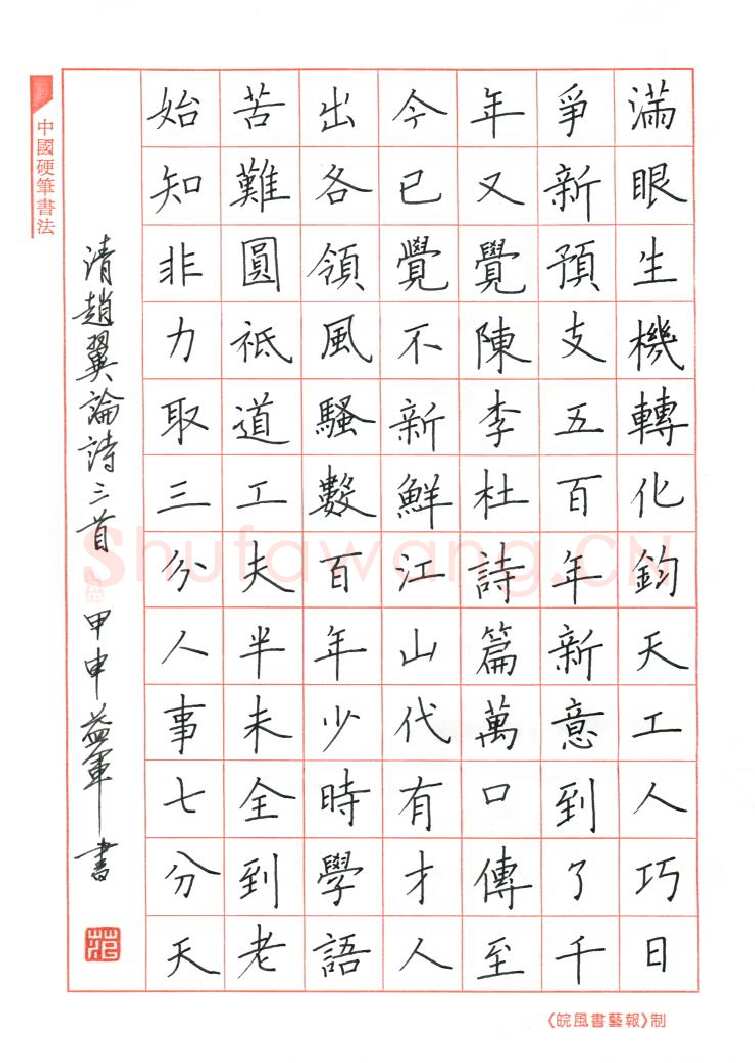 滿眼生機轉化鈞天工人巧日
爭新預支五百年新意到了千
年又覺陳李杜詩篇萬口傳至
今已覺不新鮮江山代有才人
出各領風騷數百年少時學語
苦難圓祗道工夫半未全到老
始知非力取三分人事七分天
清趙翼論詩三首 甲申益軍書
中國硬筆書法
《皖風書藝報》制
Shufawang.CN